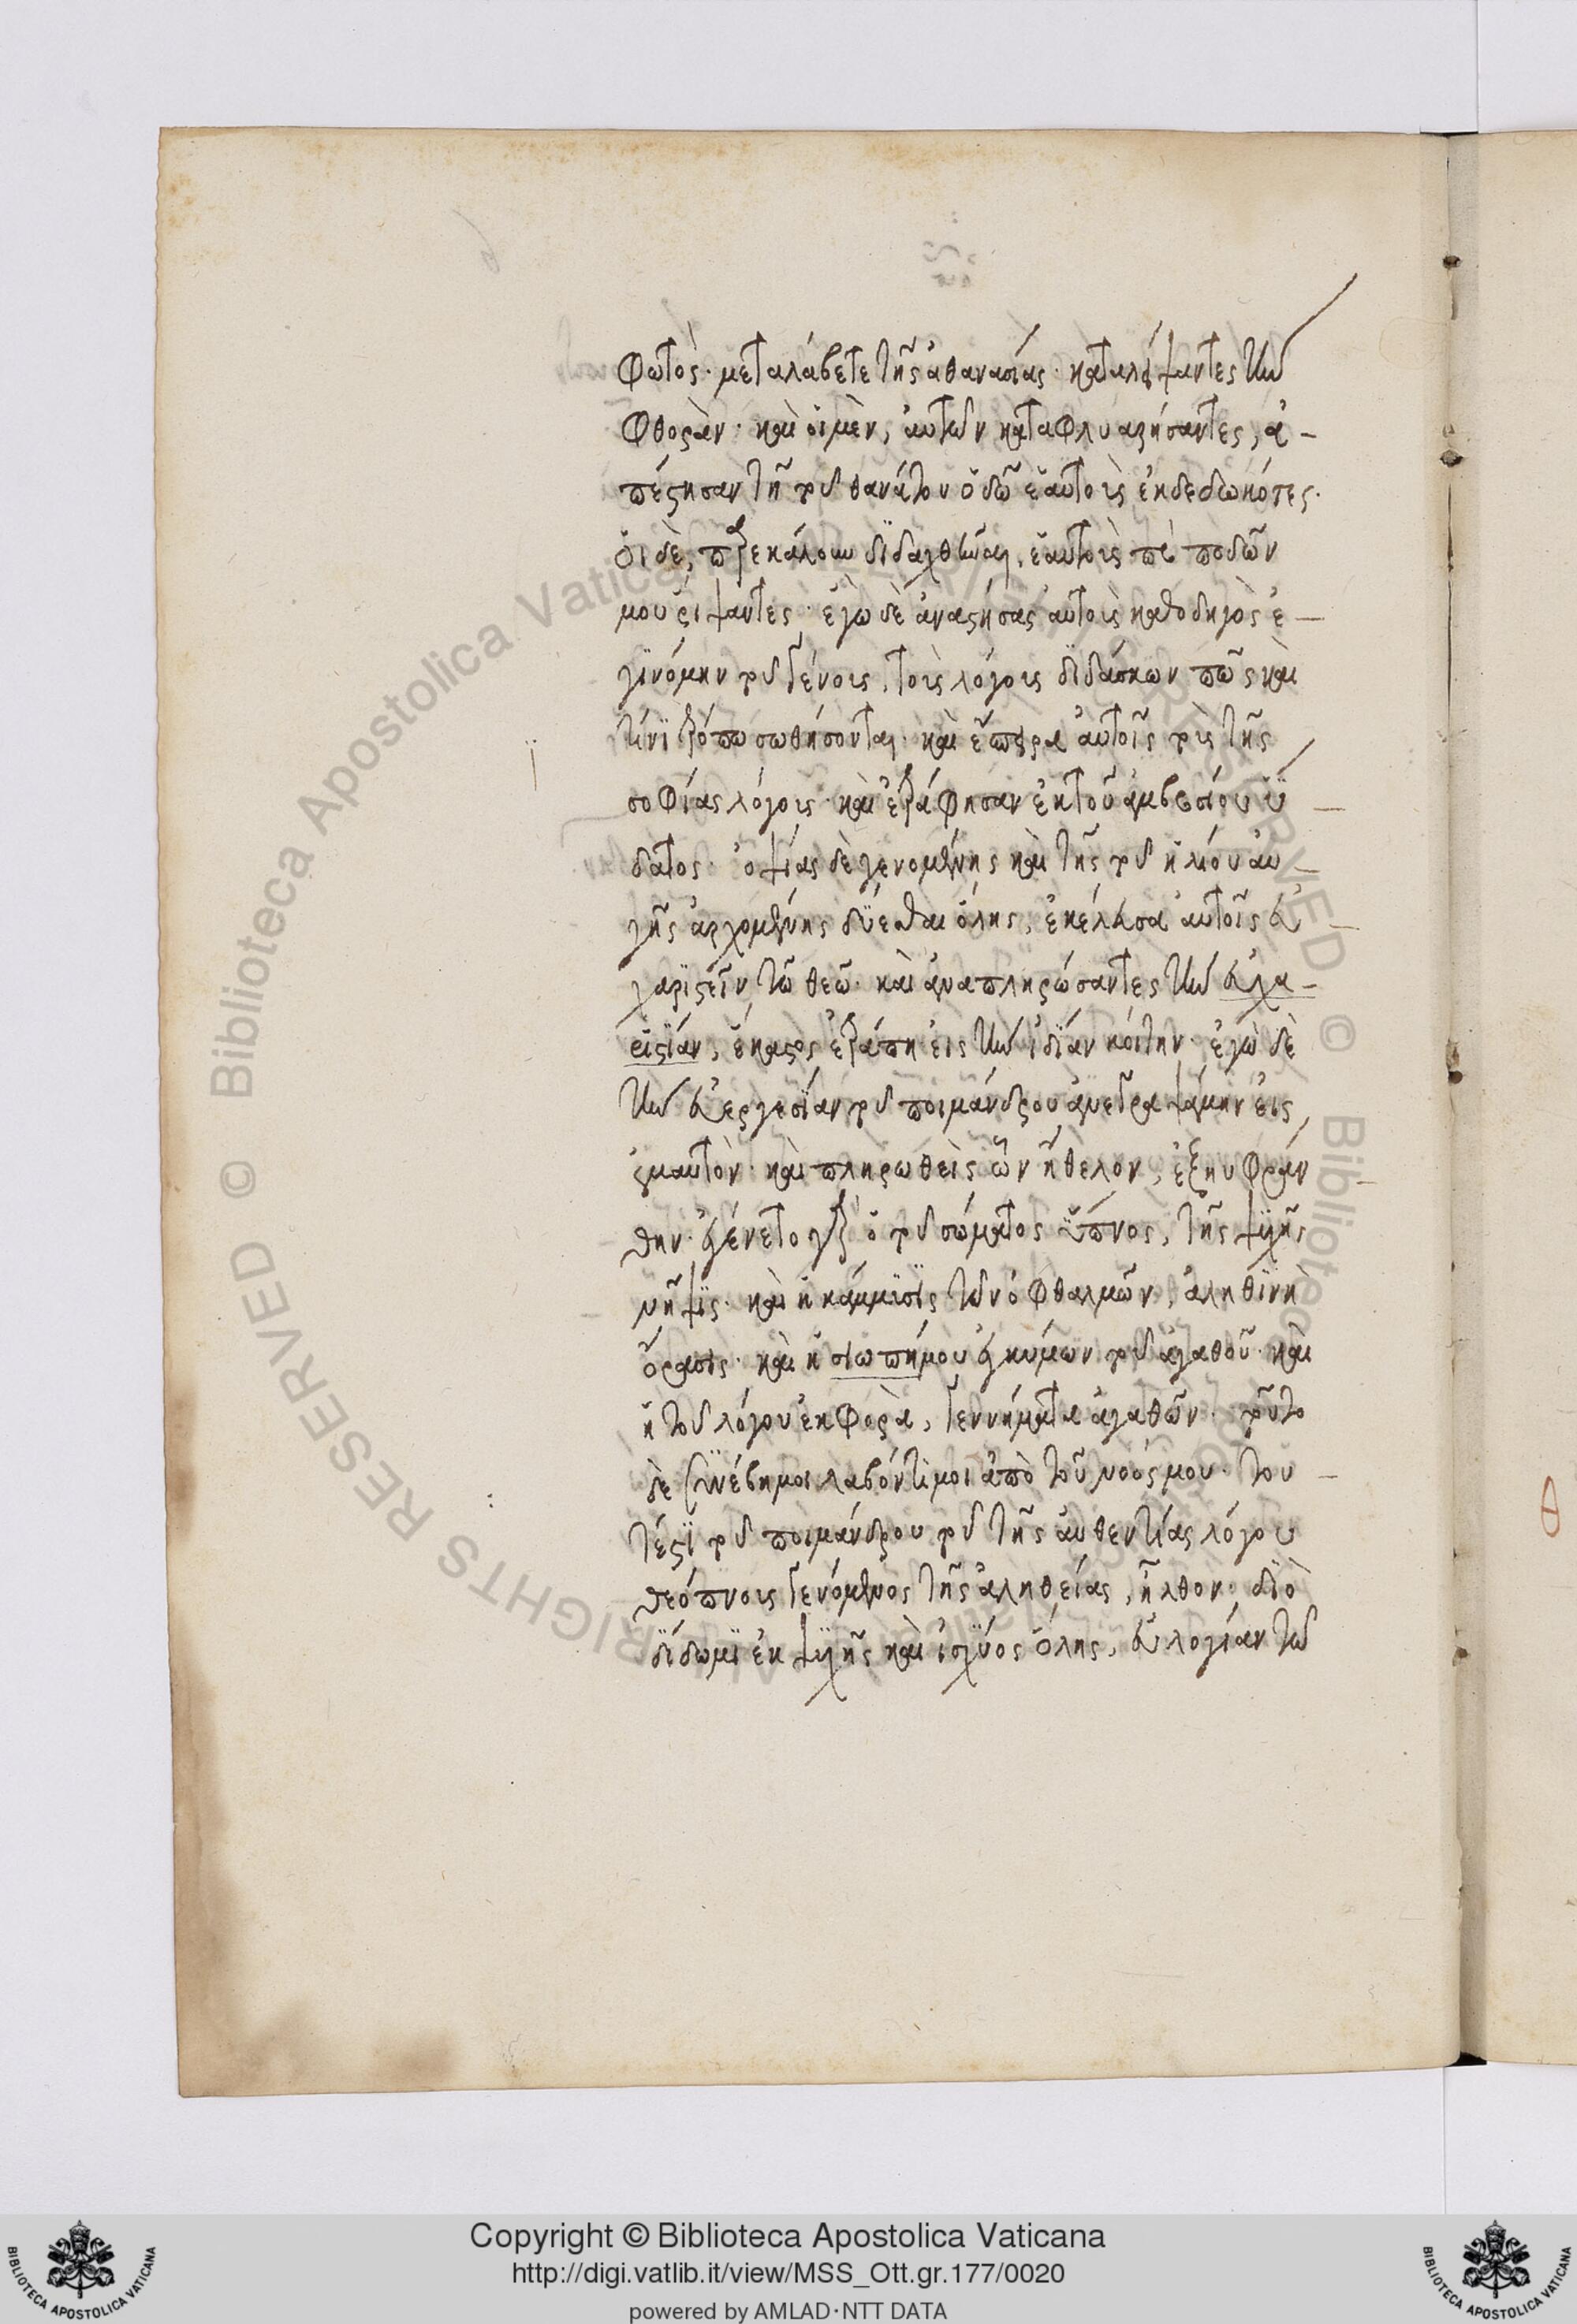 φωτὸς· μεταλάβετε τῆς ἀθανασίας· καταλείψαντες τὴν
φθορὰν· καὶ οἱ μὲν, αὐτῶν καταφλυαρήσαντες, ἀ-
πέστησαν τῆ τοῦ θανάτου ὁδῶ ἑαυτοὺς ἐκδεδωκότες·
οἱ δὲ, παρεκάλουν διδαχθῆναι, ἑαυτοὺς πρὸ ποδῶν
μου ῥίψαντες· ἐγὼ δὲ ἀναστήσας αὐτοὺς καθοδηγὸς ἐ-
γινόμην τοῦ γένους, τοὺς λόγους διδάσκων πῶς καὶ
τίνι τρόπω σωθήσονται· καὶ ἔσπειρα αὐτοῖς τοὺς τῆς
σοφίας λόγους· καὶ ἐτράφησαν ἐκ τοῦ ἀμβροσίου ὕ-
δατος· ὀψίας δὲ γενομένης καὶ τῆς τοῦ ἡλίου αὐ-
γῆς ἀρχομένης δύεσθαι ὅλης, ἐκέλευσα αὐτοῖς εὐ-
χαριστεῖν τῶ θεῶ· καὶ ἀναπληρώσαντες τὴν εὐχα-
ριστίαν, ἕκαστος ἐτράπη εἰς τὴν ἰδίαν κοίτην· ἐγὼ δὲ
τὴν εὐεργεσίαν τοῦ ποιμάνδρου ἀνεγραψάμην εἰς
ἐμαυτὸν· καὶ πληρωθεὶς ὧν ἤθελον, ἐξηυφράν
θην· ἐγένετο γὰρ ὁ τοῦ σώματος ὕπνος, τῆς ψυχῆς
νῆψις· καὶ ἡ κάμμισις τῶν ὀφθαλμῶν, ἀληθινὴ
ὅρασις· καὶ ἡ σιωπή μου ἐγκύμων τοῦ ἀγαθοῦ· καὶ
ἡ τοῦ λόγου ἐκφορὰ, γεννήματα ἀγαθῶν· τοῦτο
δὲ συνέβη μοι λαβόντι μοι ἀπὸ τοῦ νοός μου· του-
τέστι τοῦ ποιμάνδρου τοῦ τῆς αὐθεντίας λόγου
θεόπνους γενόμενος τῆς ἀληθείας, ἦλθον· διὸ
δίδωμι ἐκ ψυχῆς καὶ ἰσχύος ὅλης, εὐλογίαν τῶ
Copyright © Biblioteca Apostolica Vaticana
http://digi.vatlib.it/view/MSS_Ott.gr.177/0020
powered by AMLAD·NTT DATA